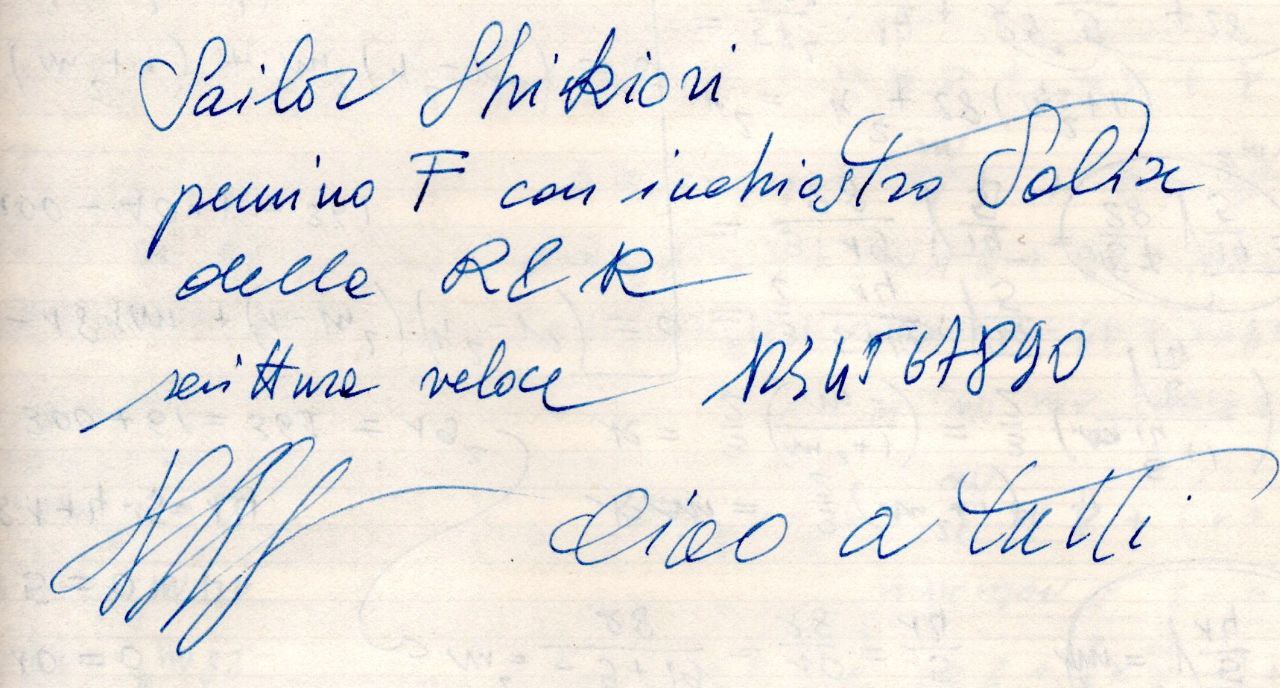 Sailor Shikiori
pennino F con inchiostro Salix
della R&R
scrittura veloce 1234567890
ciao a tutti